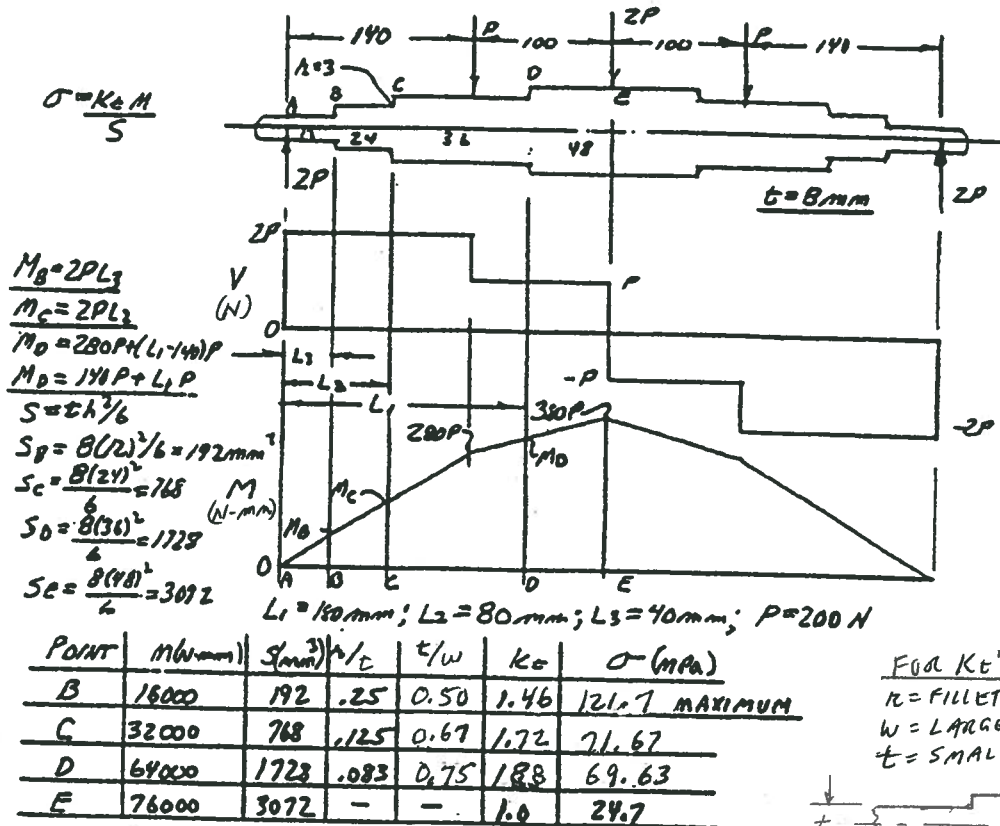 140 P 100 2P 100 P 140
r=3
A B C D E
σ = Kt M / S
12 24 36 48
2P 2P
t = 8mm
2P
V
(N)
0
P
-P
-2P
MB = 2PL3
MC = 2PL2
MD = 280P+(L1-140)P
MD = 140P + L1 P
S = th²/6
SB = 8(12)²/6 = 192mm³
SC = 8(24)²/6 = 768
SD = 8(36)²/6 = 1728
SE = 8(48)²/6 = 3092
L3
L2
L
M
(N-mm)
MB
MC
280P
MD
380P
0
A B C D E
L1 = 180mm; L2 = 80mm; L3 = 40mm; P = 200 N
POINT M(N-mm) S(mm³) r/t t/w Kt σ (MPa)
B 16000 192 .25 0.50 1.46 121.7 MAXIMUM
C 32000 768 .125 0.67 1.72 71.67
D 64000 1728 .083 0.75 1.88 69.63
E 76000 3072 — — 1.0 24.7
FOR Kt
r = FILLET
w = LARGE
t = SMAL
t